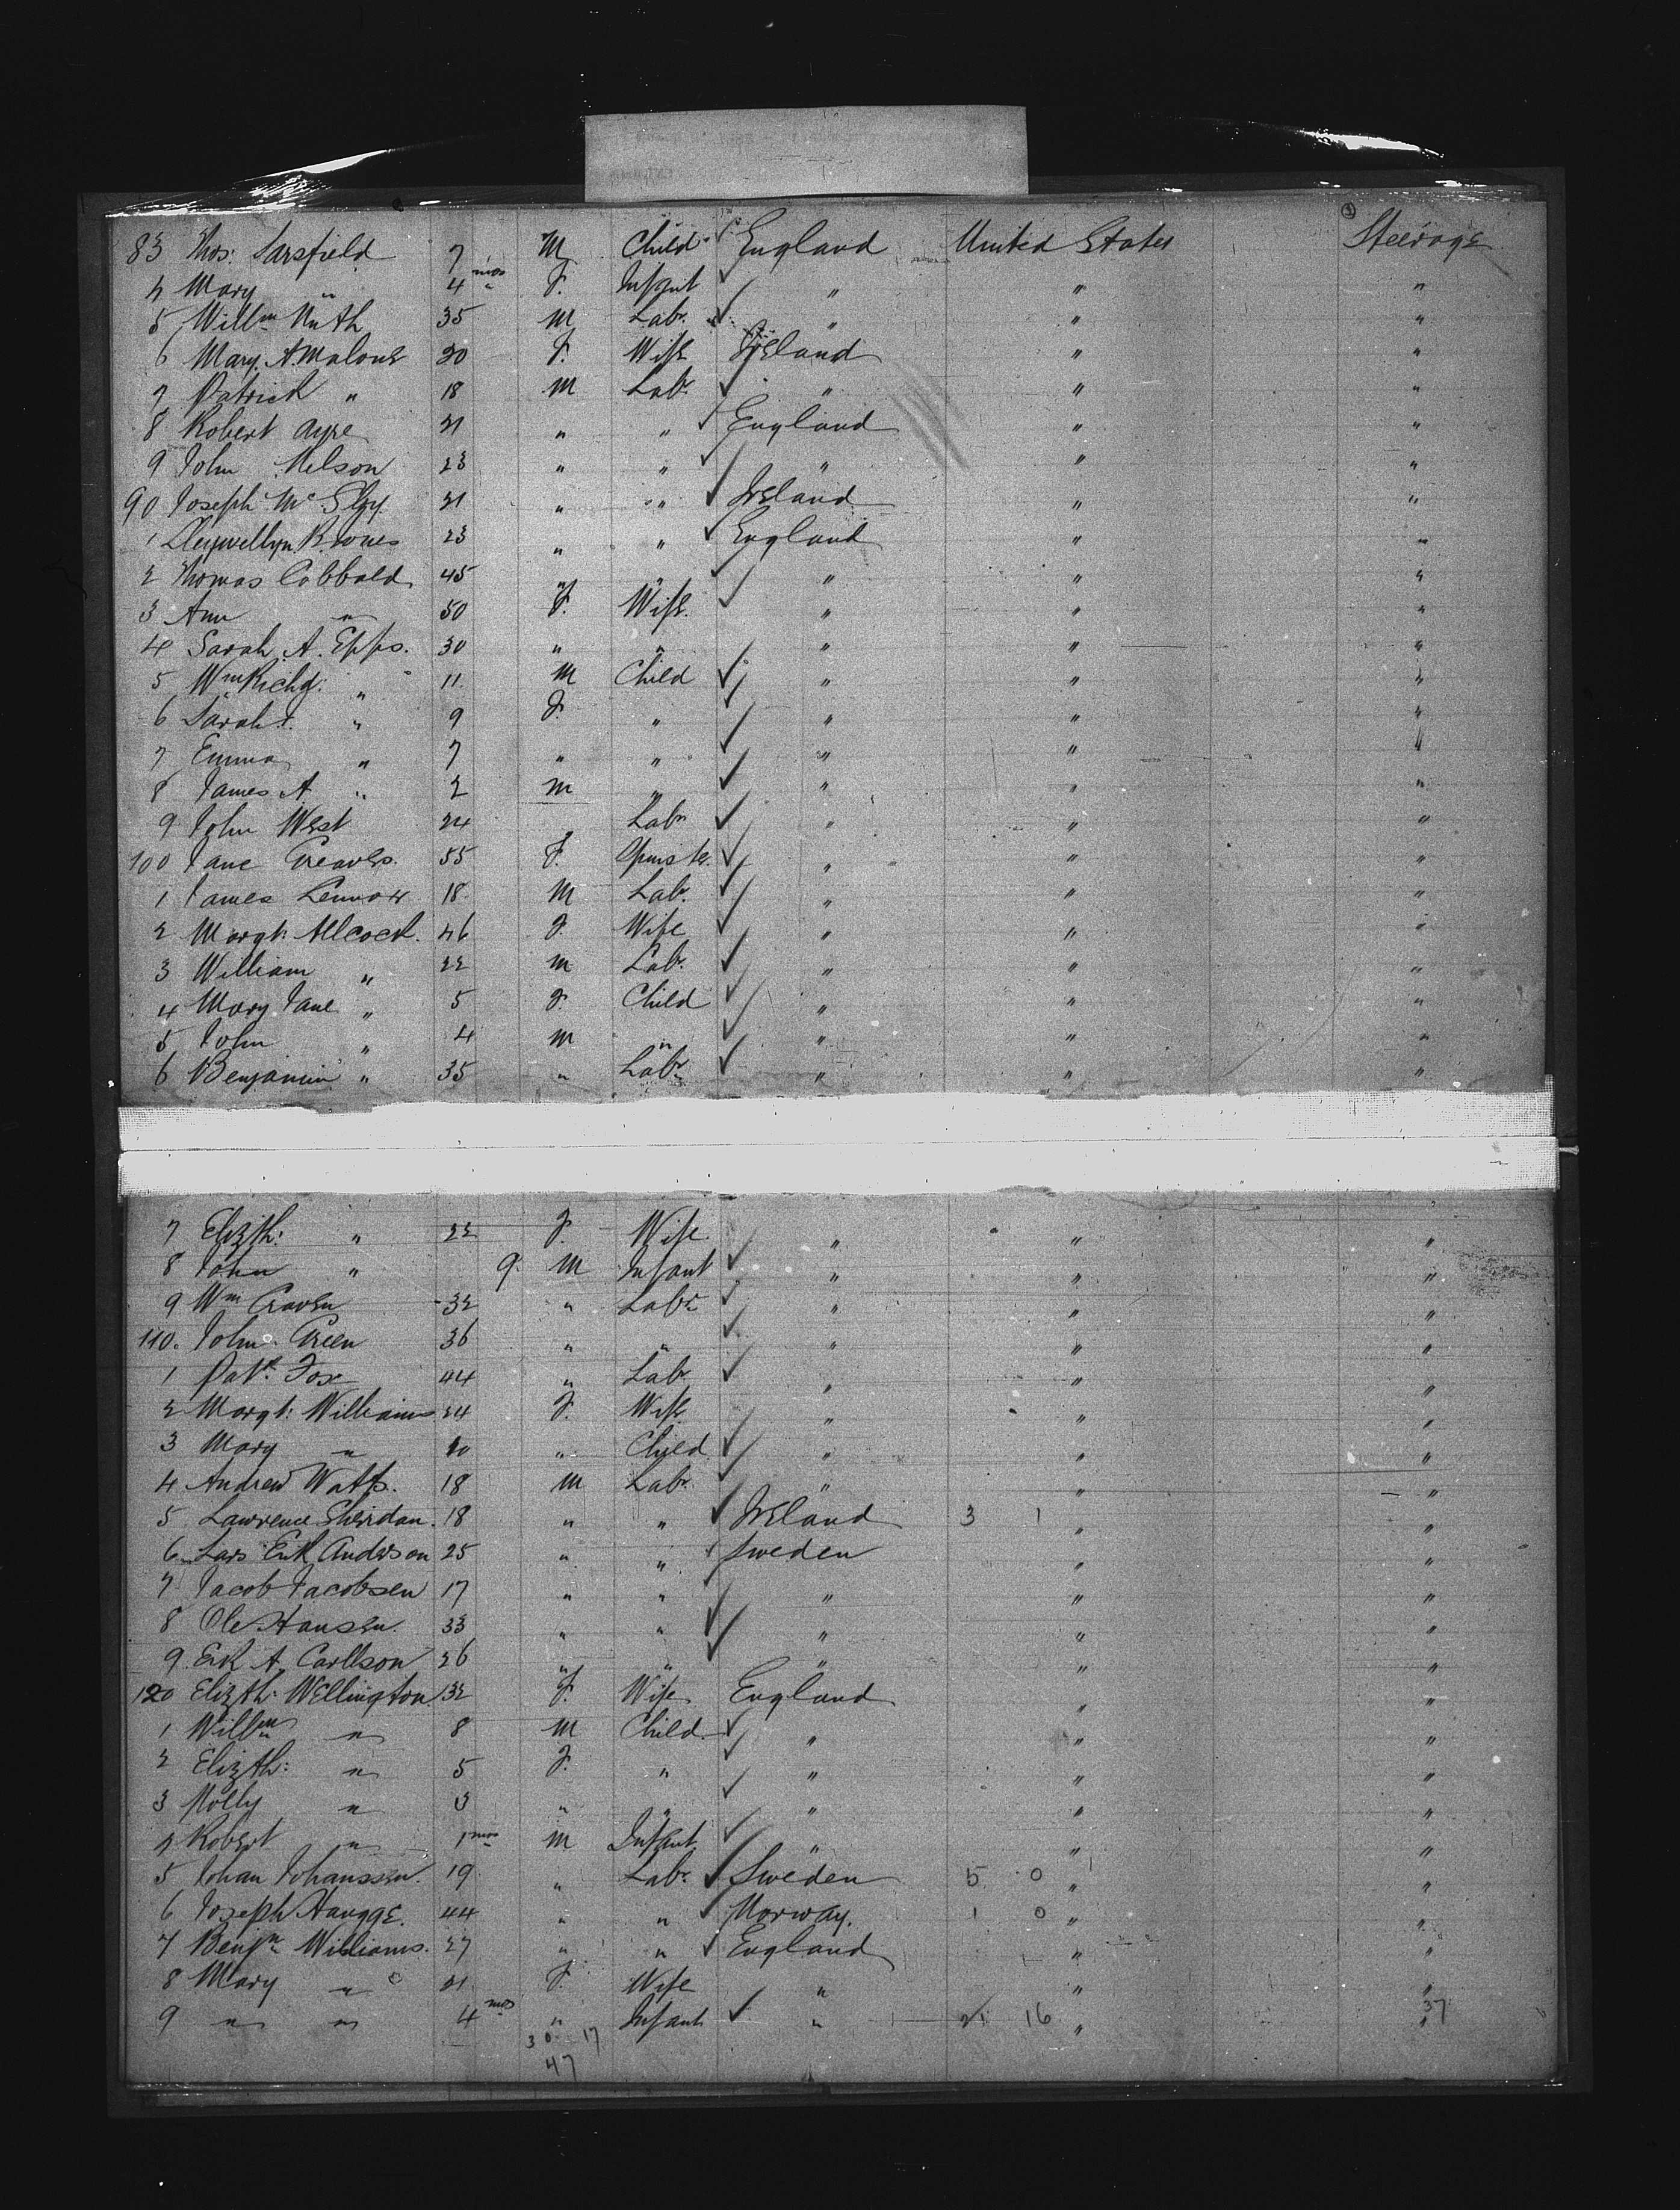 83 Thos: Sarsfield 7 M Child England United States Steerage
4 Mary " 4 mos F. Infant " " "
5 Willm Nuth 35 M Labr. " " "
6 Mary. A Malone 20 F. Wife Ireland " "
7 Patrick " 18 M Labr " " "
8 Robert Ayre 21 " " England " "
9 John Nelson 23 " " " " "
90 Joseph Mc 21 " " Ireland " "
1 Llewellyn 23 " " England " "
2 Thomas Cobbold 45 " " " " "
3 Ann " 50 F. Wife. " " "
4 Sarah. A. Epps. 30 " " " " "
5 Wm Richd: " 11. M Child " " "
6 Sarah " 9 F. " " " "
7 Emma " 7 " " " " "
8 James A " 2 M " " " "
9 John West 24 Labr " " "
100 Jane Greaves. 55 F. Spinster. " " "
1 James Lennox 18. M Labr. " " "
2 Margt: Allcock. 46 F. Wife " " "
3 William " 22 M Labr. " " "
4 Mary Jane " 5 F. Child " " "
5 John " 4 M " " " "
6 Benjamin " 35 " Labr " " "
7 Elizth: " 22 F. Wife. " " "
8 John " 9. M Infant " " "
9 Wm Craven 32 " Labr " " "
110. John Green 36 " " " " "
1 Patk. Fox 44 " Labr " " "
2 Margt: Williams 24 F. Wife " " "
3 Mary " 10 " Child " " "
4 Andrew Watts. 18 M Labr. " " "
5 Lawrence Sheridan. 18 " " Ireland 3 1 " "
6 Lars Erik Anderson 25 " " Sweden " "
7 Jacob Jacobsen 17 " " " " "
8 Ole Hansen. 33 " " " " "
9 Erk A. Carlson 26 " " " " "
120 Elizth: Wellington 32 F. Wife England " "
1 Willm " 8 M Child. " " "
2 Elizth: " 5 F. " " " "
3 Polly " 3 " " " " "
4 Robert " 1 mos M Infant " " "
5 Johan Johanssen. 19 " Labr Sweden 5 0 " "
6 Joseph Haugge. 44 " " Norway. 1 0 " "
7 Benjn Williams. 27 " " England " "
8 Mary " 21 F. Wife " " "
9 " " 4 mos " Infant " 21 16 " 37 "
30 17
47